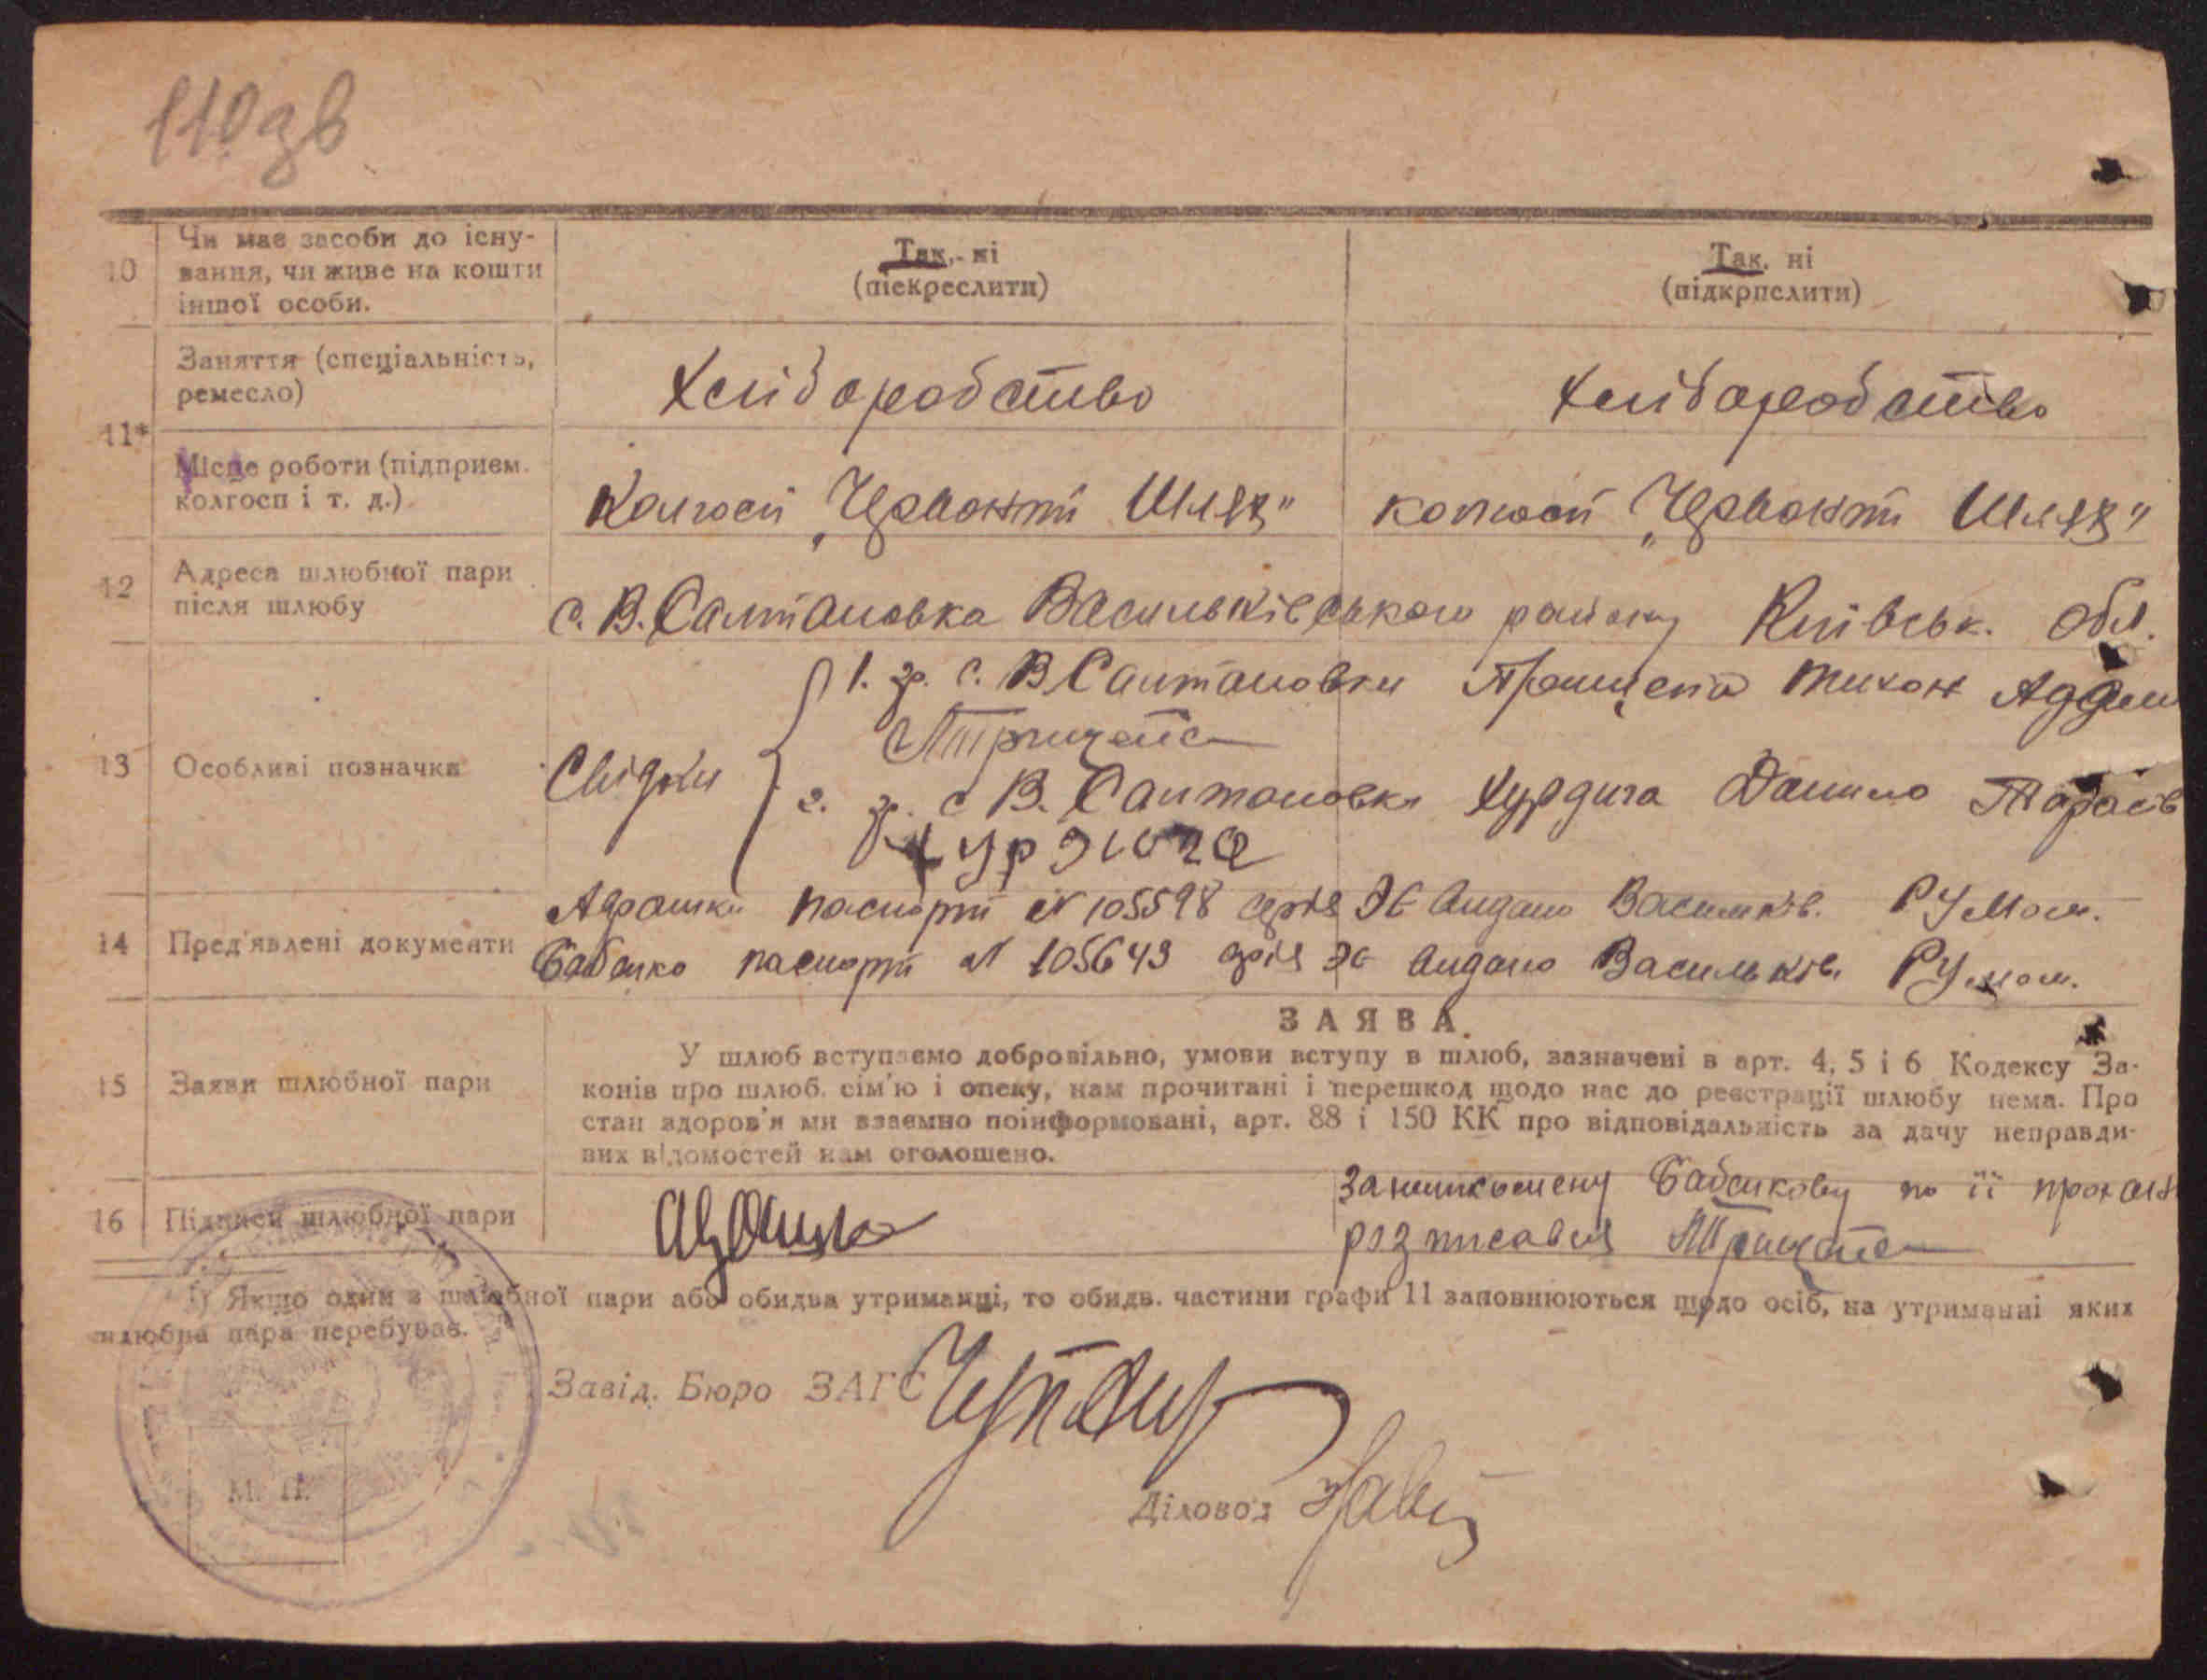 110 зв
10
Чи має засоби до існу-
вання, чи живе на кошти
іншої особи.
Так, ні
(піекреслити)
Так, ні
(підкрпслити)
11*
Заняття (спеціальність,
ремесло)
Хліборобство
Хліборобство
Місце роботи (підприєм.
колгосп і т. д.)
Колгосп „Червоний Шлях"
колгосп „Червоний Шлях"
12
Адреса шлюбної пари
після шлюбу
с. В. Салтановка Васильківського району Київськ. обл.
13
Особливі позначки
Свідки
1. гр. с. В Салтановки Трищепа Тихон
Трищепа
2. гр. с В. Салтановки Хурдига Данило Тарасів
Хурдига
14
Пред'явлені документи
паспорт № 105598 серія ЭЄ видано Васильків. РУМол.
Бабенко паспорт № 105643 серія ЭЄ видано Васильків. РУМол.
15
Заяви шлюбної пари
ЗАЯВА.
У шлюб вступаємо добровільно, умови вступу в шлюб, зазначені в арт. 4, 5 і 6 Кодексу За-
конів про шлюб, сім'ю і опеку, нам прочитані і перешкод щодо нас до реєстрації шлюбу нема. Про
стан здоров'я ми взаємно поінформовані, арт. 88 і 150 КК про відповідальність за дачу неправди-
вих відомостей нам оголошено.
16
Підписи шлюбної пари
За неписьменну Бабенкову по її прохан
розписався Трищепа
1) Якщо один з шлюбної пари або обидва утриманці, то обидв. частини графи 11 заповнюються щодо осіб, на утриманні яких
шлюбна пара перебуває.
Завід. Бюро ЗАГС
Діловод
М. П.